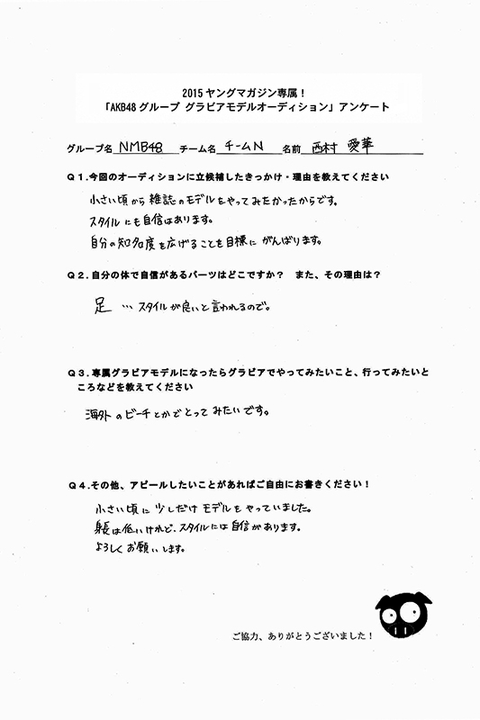 2015 ヤングマガジン専属！
「AKB48 グループ グラビアモデルオーディション」アンケート
グループ名 NMB48 チーム名 チームN 名前 西村 愛華
Q1.今回のオーディションに立候補したきっかけ・理由を教えてください
小さい頃から雑誌のモデルをやってみたかったからです。
スタイルにも自信はあります。
自分の知名度を広げることを目標にがんばります。
Q2.自分の体で自信があるパーツはどこですか？ また、その理由は？
足 … スタイルが良いと言われるので。
Q3.専属グラビアモデルになったらグラビアでやってみたいこと、行ってみたいと
ころなどを教えてください
海外のビーチとかでとってみたいです。
Q4.その他、アピールしたいことがあればご自由にお書きください！
小さい頃に少しだけモデルをやっていました。
身長は低いけれど、スタイルには自信があります。
よろしくお願いします。
ご協力、ありがとうございました！